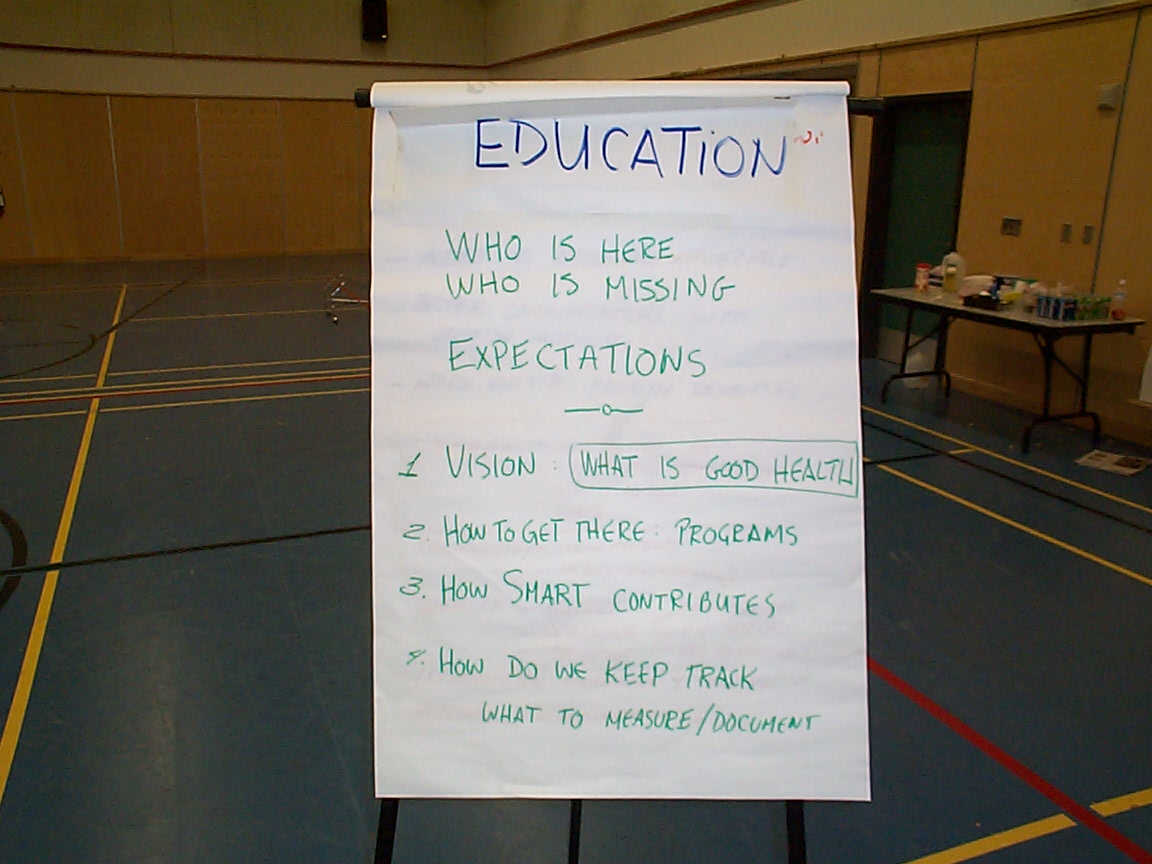 EDUCATION
WHO IS HERE
WHO IS MISSING
EXPECTATIONS
1 VISION : WHAT IS GOOD HEALTH
2. HOW TO GET THERE : PROGRAMS
3. HOW SMART CONTRIBUTES
4. HOW DO WE KEEP TRACK
WHAT TO MEASURE/DOCUMENT